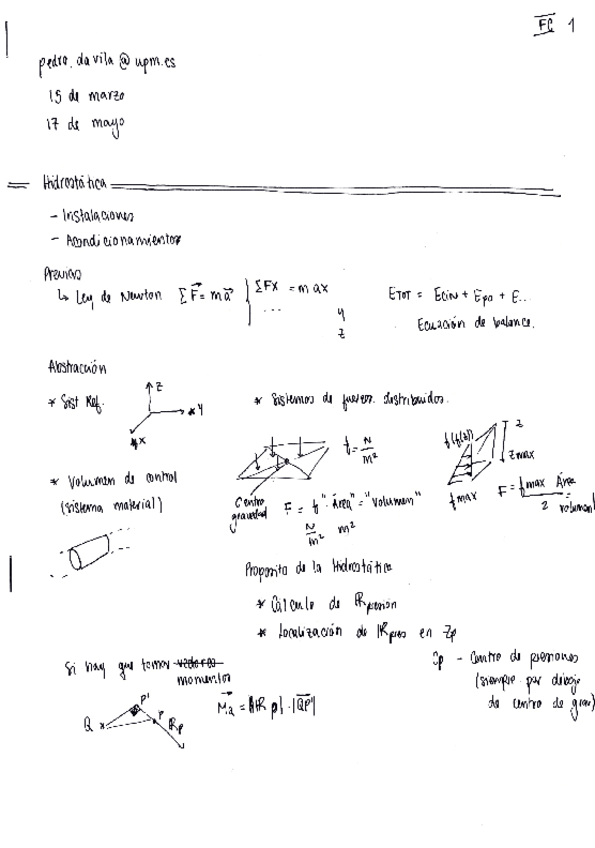 FC 1
pedro.davila@upm.es
15 de marzo
17 de mayo
Hidrostática
- Instalaciones
- Acondicionamientos
Previos
↳ Ley de Newton ΣF = ma { ΣFx = m ax
... y
z
ETOT = Ecin + Epo + E...
Ecuación de balance.
Abstracción
* Sist Ref.
z
y
x
* Volumen de control
(sistema material)
* Sistemas de fuerzas distribuidos.
f = N/m²
Centro
gravedad
F = f "Área" = "volumen"
N/m² m²
f(f(z))
z
zmax
fmax
F = fmax Área / 2 = volumen
Proposito de la Hidrostática
* Cálculo de Rpresión
* Localización de Rpres en Zp
Zp - Centro de presiones
(siempre por debajo
de centro de grav)
Si hay que tomar vectores
momentos
Q
P'
P
Rp
MQ = |Rp| · |QP'|